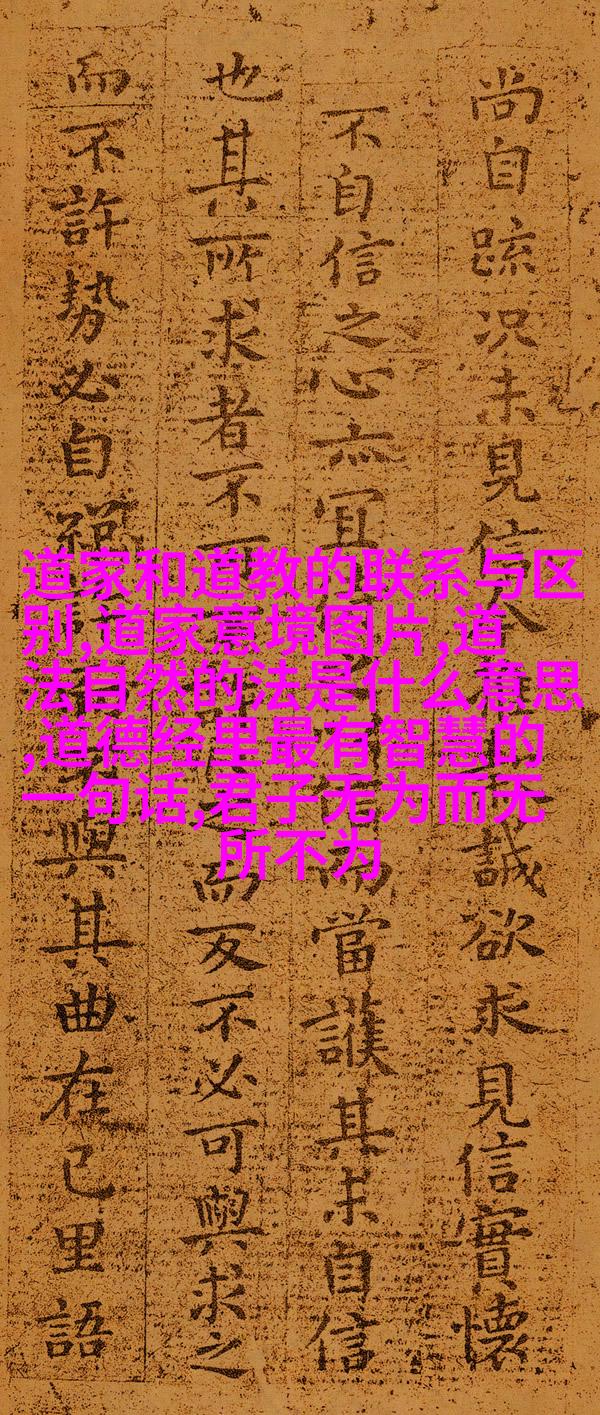 道家和道教的联系与区
别,道家意境图片,道
法自然的法是什么意思
,道德经里最有智慧的
一句话,君子无为而无
所不为
尚自踈況未見信 誠欲求見信實懷
不自信之心亦宜 而當護其未自信
也其所求者不可 而反不必可與求之
而不許勢必自絕 與其曲在己里語